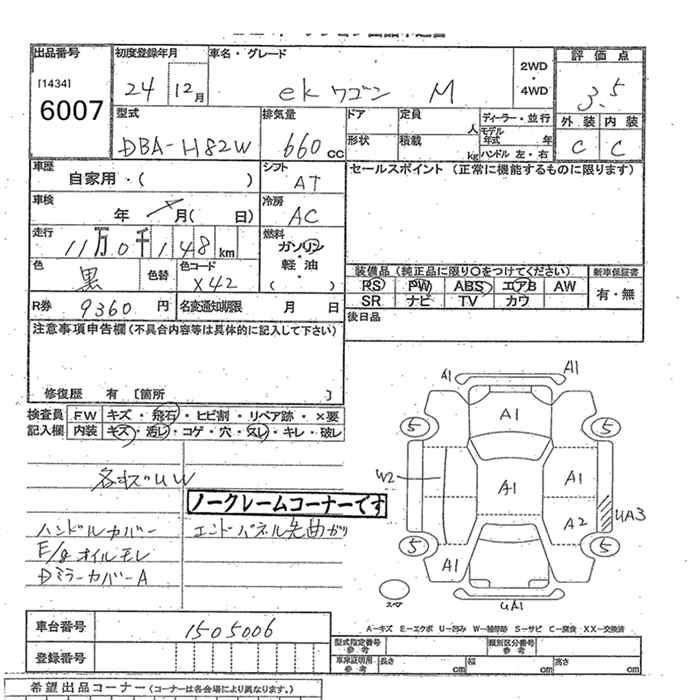 出品番号
[1434]
6007
初度登録年月
24 12月
車名・グレード
ekワゴン M
2WD
・
4WD
評価点
3.5
外装 内装
C C
型式
DBA-H82W
排気量
660cc
ドア
形状
定員
人
積載
kg
ディーラー・並行
モデル年式 年
ハンドル 左・右
車歴
自家用・( )
シフト
AT
セールスポイント (正常に機能するものに限ります)
車検
年 月( 日)
冷房
AC
走行
11万0千148km
燃料
ガソリン
・
軽油
( )
色
黒
色替
色コード
X42
装備品 (純正品に限り○をつけてください)
PS PW ABS エアB AW
SR ナビ TV カワ
新車保証書
有・無
R券
9360円
名変通知期限 月 日
後日品
注意事項申告欄(不具合内容等は具体的に記入して下さい)
修復歴 有〔箇所 〕
検査員記入欄
FW キズ・飛石・ヒビ割・リペア跡・×要
内装 キズ・汚レ・コゲ・穴・スレ・キレ・破レ
各キズUW
ノークレームコーナーです
ハンドルカバー
エンドパネル先曲がり
E/gオイルモレ
DミラーカバーA
A1 A1
A1
5 5
W2 A1 A1
A2 UA3
5 5
A1
UA1
スペア
A-キズ E-エクボ U-凹み W-補修跡 S-サビ C-腐食 XX-交換済
車台番号
1505006
登録番号
型式指定番号
参考
類別区分番号
参考
車庫証明用
参考
長さ cm 幅 cm 高さ cm
希望出品コーナー(コーナー名は各会場により異なります。)